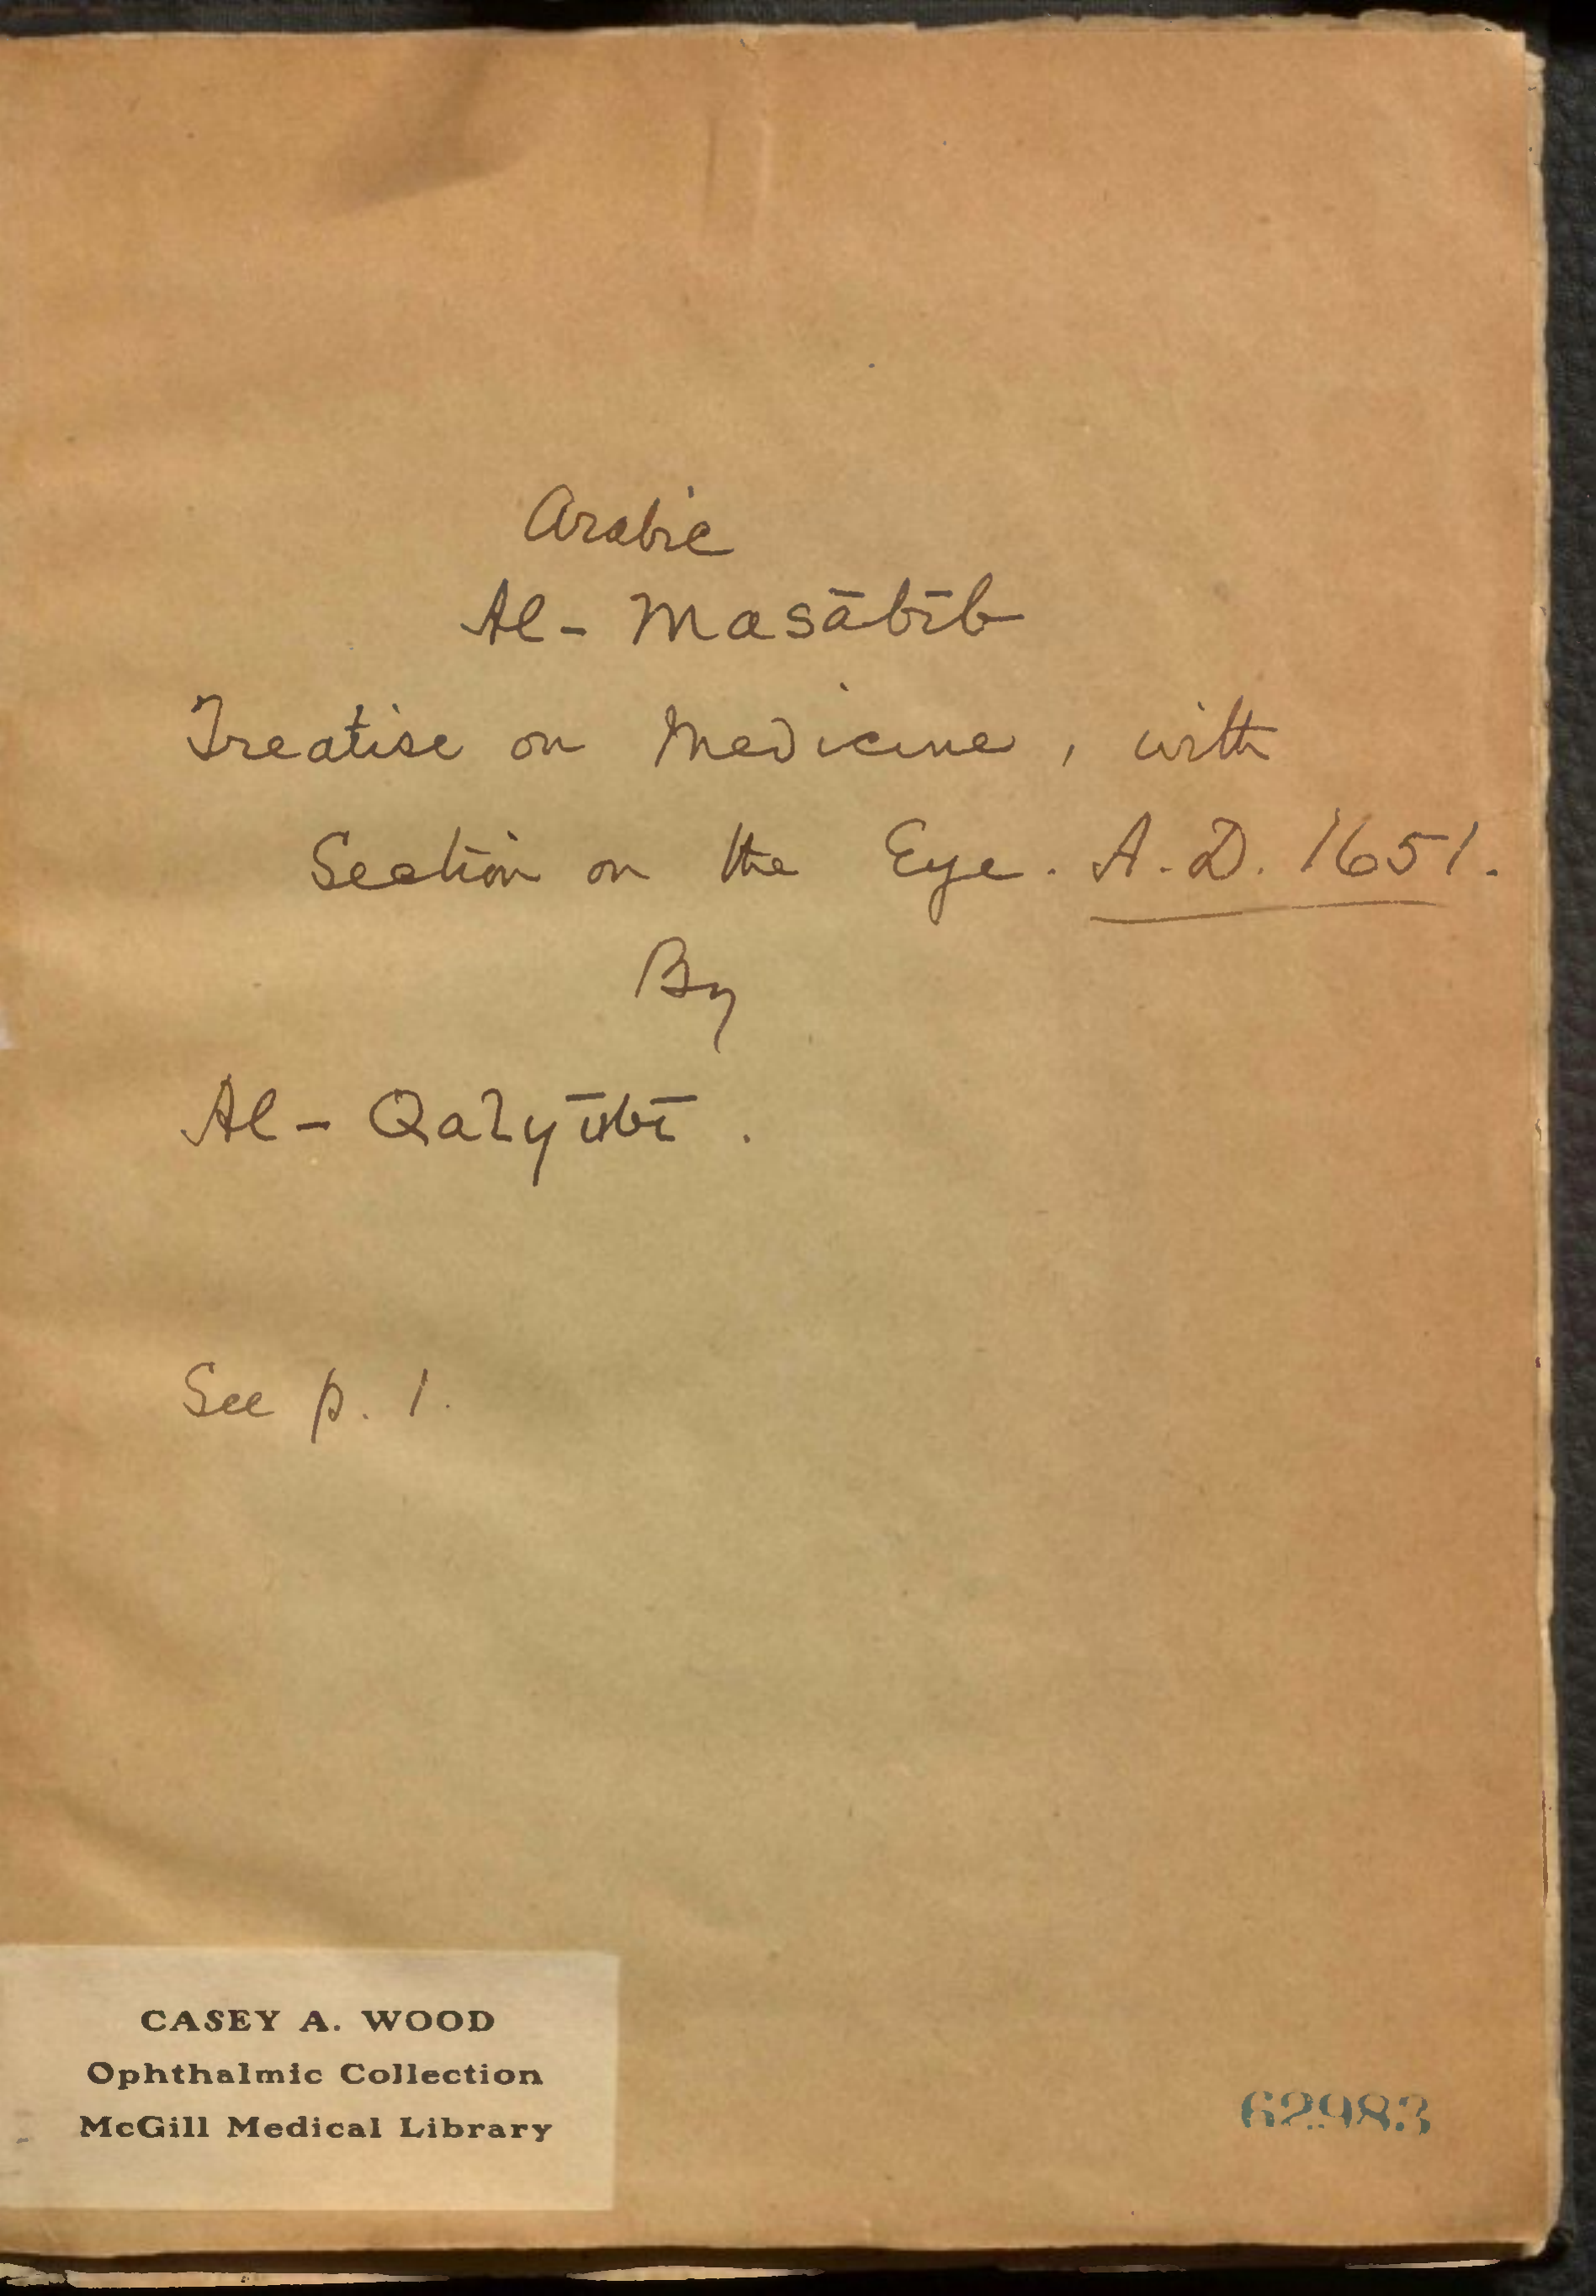 Arabic
Al- Masābīb
Treatise on Medicine, with
Section on the Eye. A.D. 1651.
By
Al- Qalyūbī.
See p. 1.
CASEY A. WOOD
Ophthalmic Collection
McGill Medical Library
62983